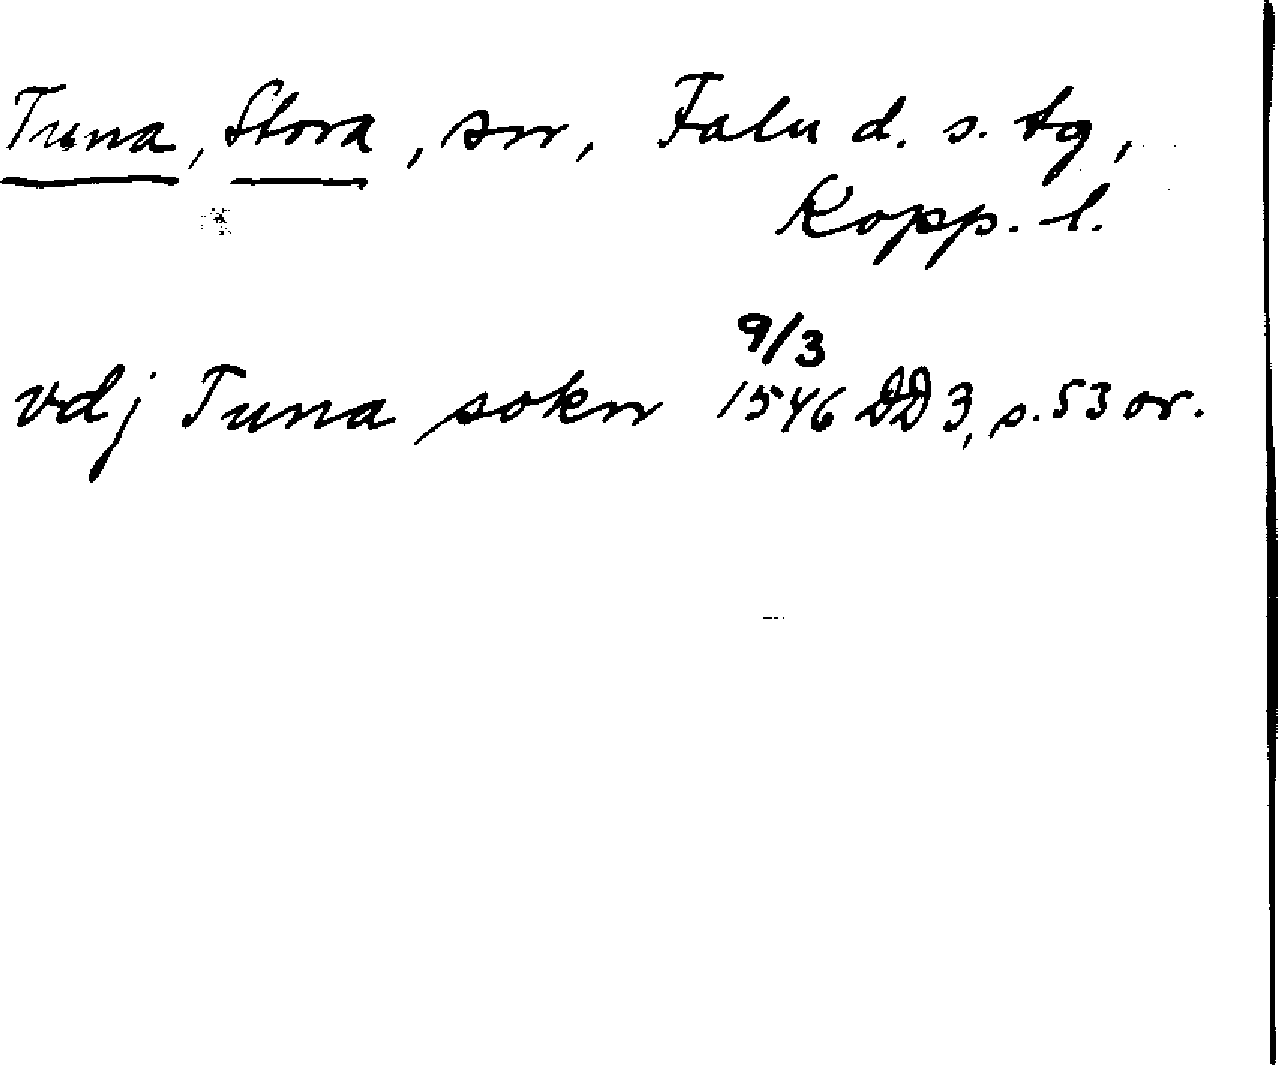 Tuna, Stora, sn, Falu d. s. tg,
Kopp. l.
vdj Tuna sokn 9/3 1546 DD 3, s. 53 or.